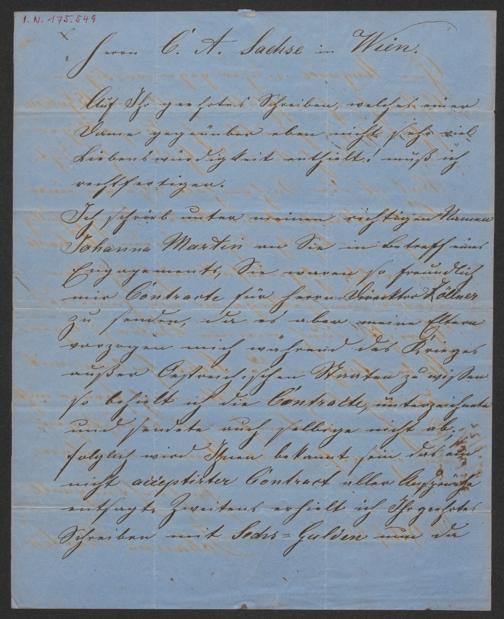 I. N. 175.549
Herrn C. A. Sachse in Wien.
Auf Ihr geehrtes Schreiben, welches einer
Dame gegenüber eben nicht sehr viel
Liebenswürdigkeit enthält, muß ich
rechtfertigen.
Ich schrieb unter meinem richtigen Namen
Johanna Martin an Sie in Betreff eines
Engagements, Sie waren so freundlich
mir Contracte für Herrn Direktor Zöllner
zu senden, da es aber meine Eltern
vorzogen mich während des Krieges
außer Östreichischen Staaten zu wissen
so behielt ich die Contracte, unterzeichnete
und sendete auch selbige nicht ab.
folglich wird Ihnen bekannt sein das ein
nicht acceptirter Contract aller
entsagte. Zweitens erhielt ich Ihr geehrtes
Schreiben mit Sechs=Gulden nun da